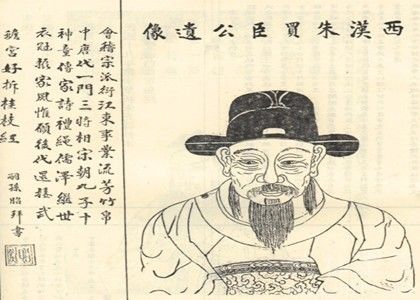 西漢朱買臣公遺像
會稽宗派衍江東事業流芳竹帛
中唐代一門三將相宋朝九子十
神童傳家詩禮綿儒澤繼世
衣冠振家風惟願後代還接武
蟾宮好折桂枝經
嗣孫昭拜書